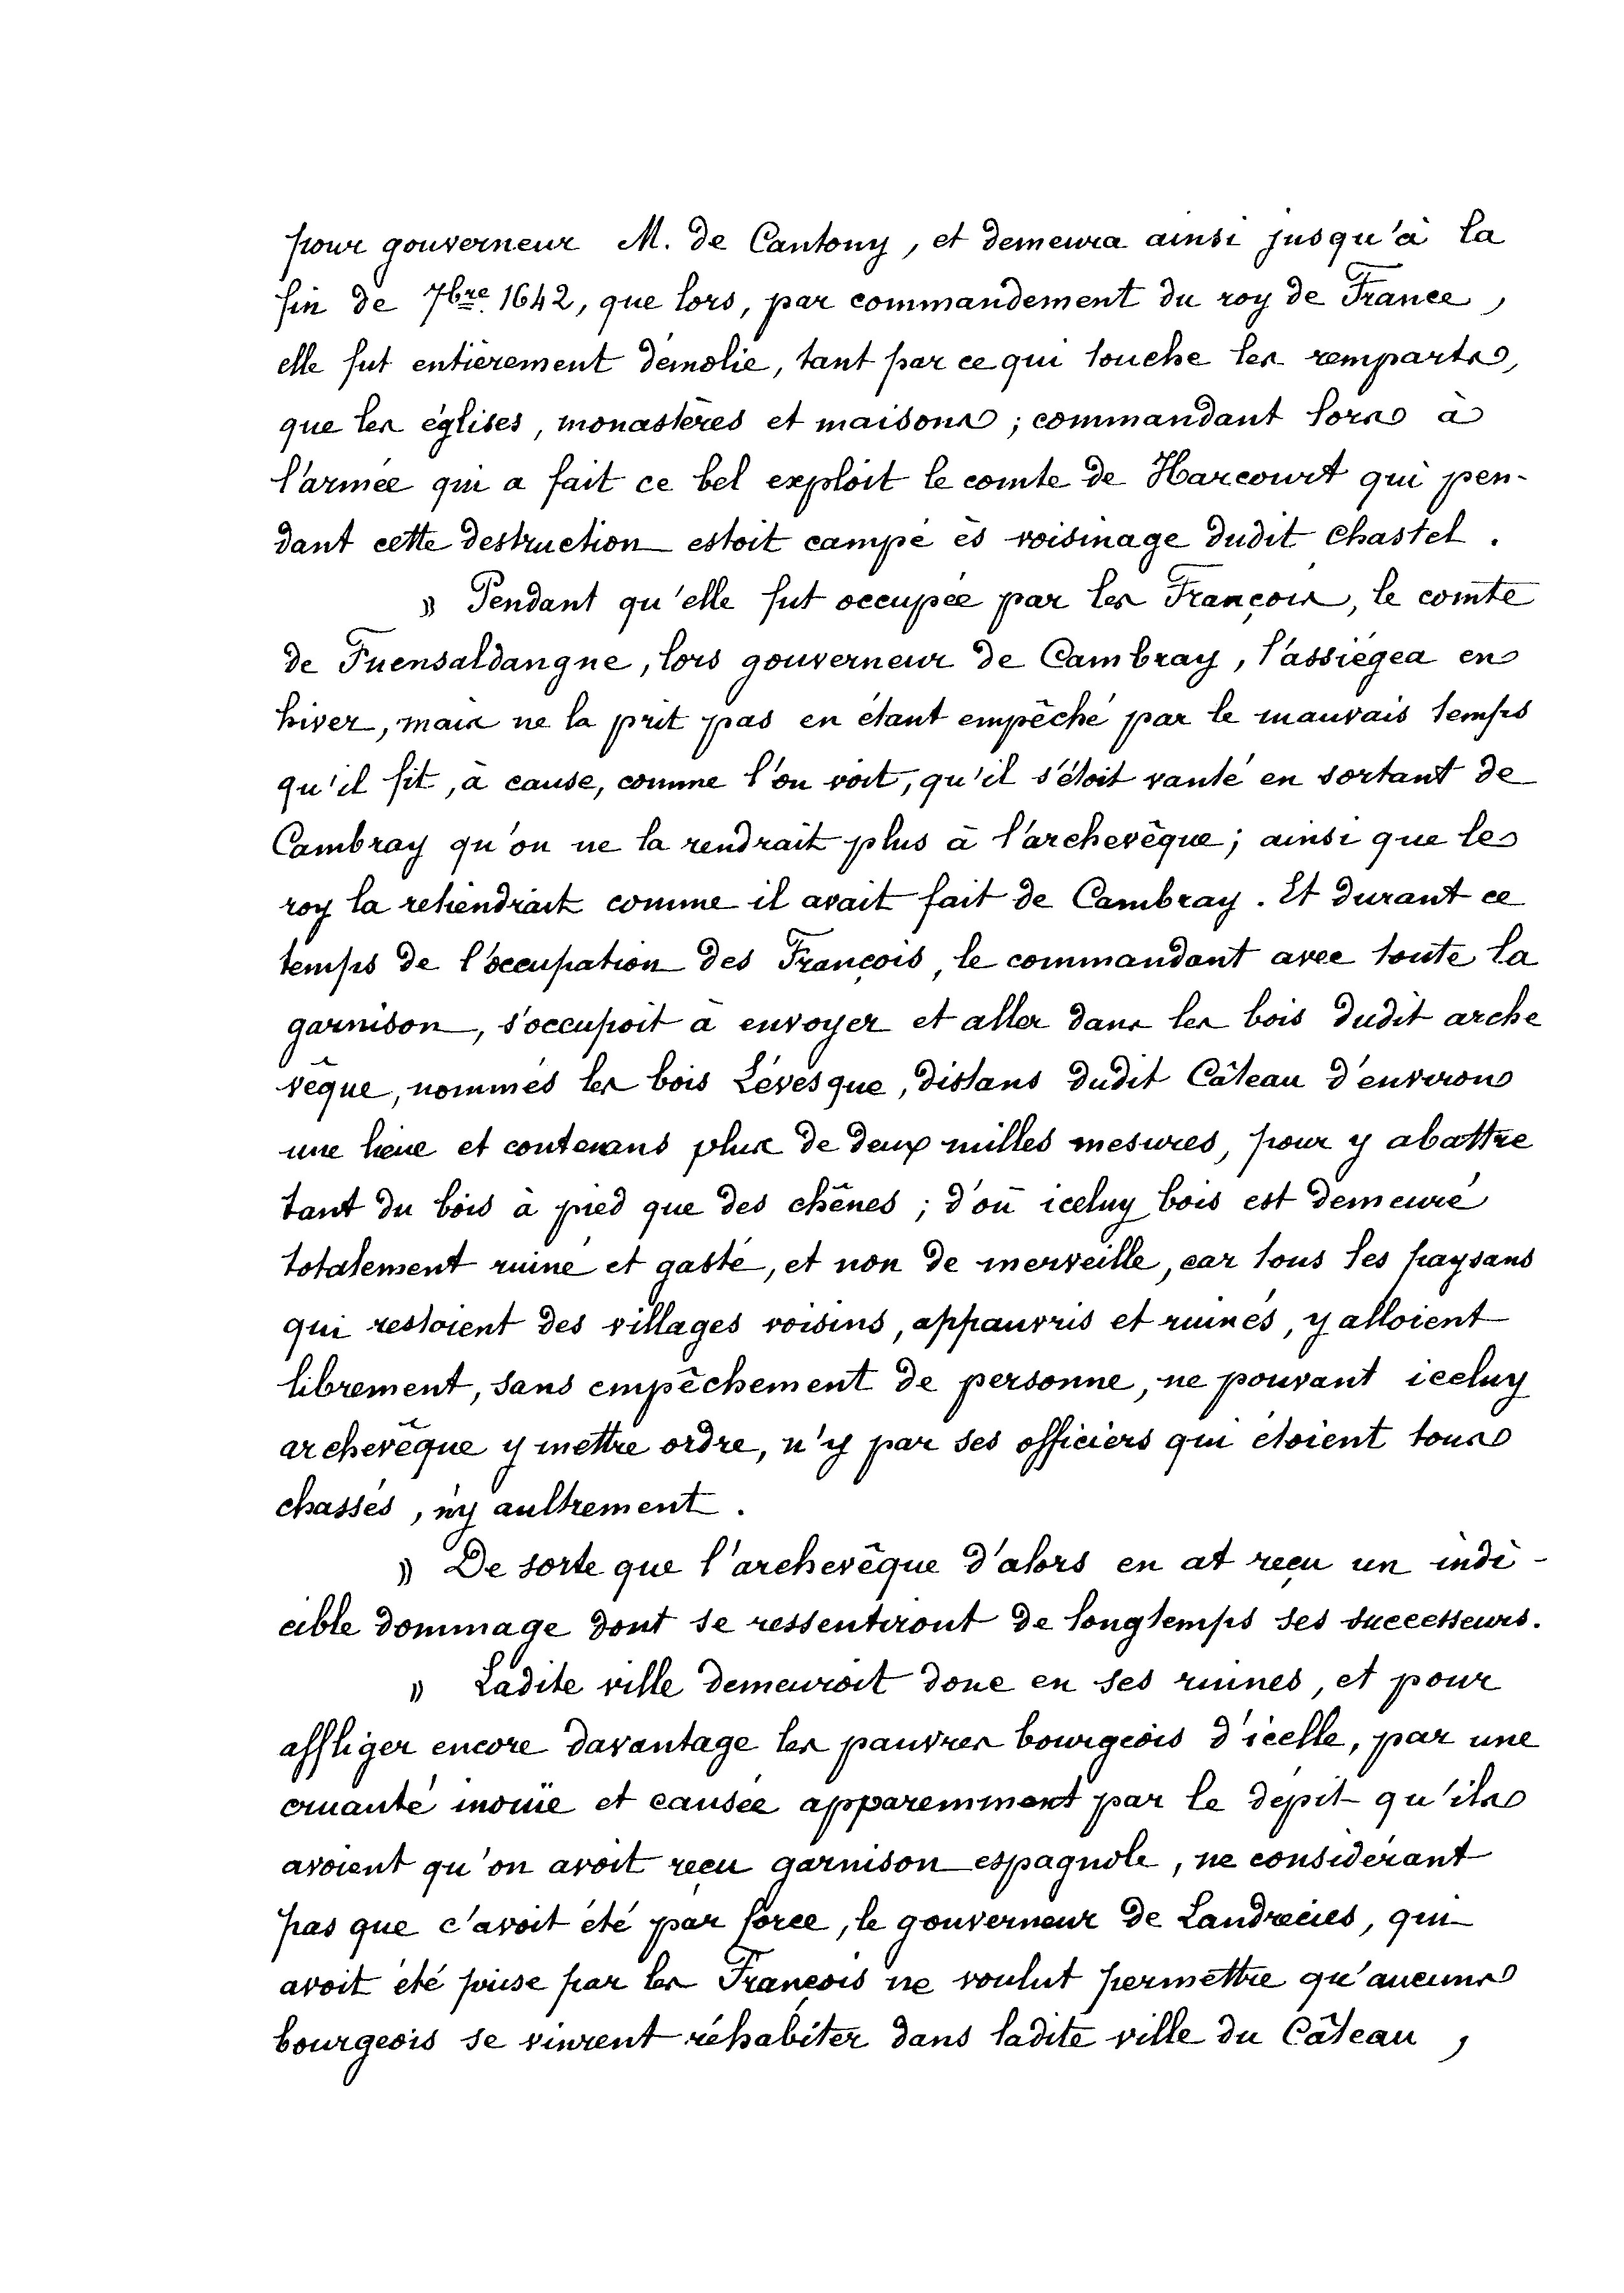 pour gouverneur M. de Cantony, et demeura ainsi jusqu'à la
fin de 7bre. 1642, que lors, par commandement du roy de France,
elle fut entièrement démolie, tant par ce qui touche les remparts,
que les églises, monastères et maisons ; commandant lors à
l'armée qui a fait ce bel exploit le comte de Harcourt qui pen-
dant cette destruction estoit campé ès voisinage dudit Chastel.
» Pendant qu'elle fut occupée par les François, le comte
de Fuensaldangne, lors gouverneur de Cambray, l'assiégea en
hiver, mais ne la prit pas en étant empêché par le mauvais temps
qu'il fit, à cause, comme l'on voit, qu'il s'étoit vanté en sortant de
Cambray qu'on ne la rendrait plus à l'archevêque ; ainsi que le
roy la retiendrait comme il avait fait de Cambray. Et durant ce
temps de l'occupation des François, le commandant avec toute la
garnison, s'occupoit à envoyer et aller dans les bois dudit arche
vêque, nommés les bois Lévesque, distans dudit Câteau d'environ
une lieue et contenans plus de deux milles mesures, pour y abattre
tant du bois à pied que des chênes ; d'où iceluy bois est demeuré
totalement ruiné et gasté, et non de merveille, car tous les paysans
qui restoient des villages voisins, appauvris et ruinés, y alloient
librement, sans empêchement de personne, ne pouvant iceluy
archevêque y mettre ordre, n'y par ses officiers qui étoient tous
chassés, n'y aultrement.
» De sorte que l'archevêque d'alors en at reçu un indi-
cible dommage dont se ressentiront de longtemps ses successeurs.
» Ladite ville demeuroit donc en ses ruines, et pour
affliger encore davantage les pauvres bourgeois d'icelle, par une
cruauté inouïe et causée apparemment par le dépit qu'ils
avoient qu'on avoit reçu garnison espagnole, ne considérant
pas que c'avoit été par force, le gouverneur de Landrecies, qui
avoit été prise par les François ne voulut permettre qu'aucuns
bourgeois se vinrent réhabiter dans ladite ville du Câteau,